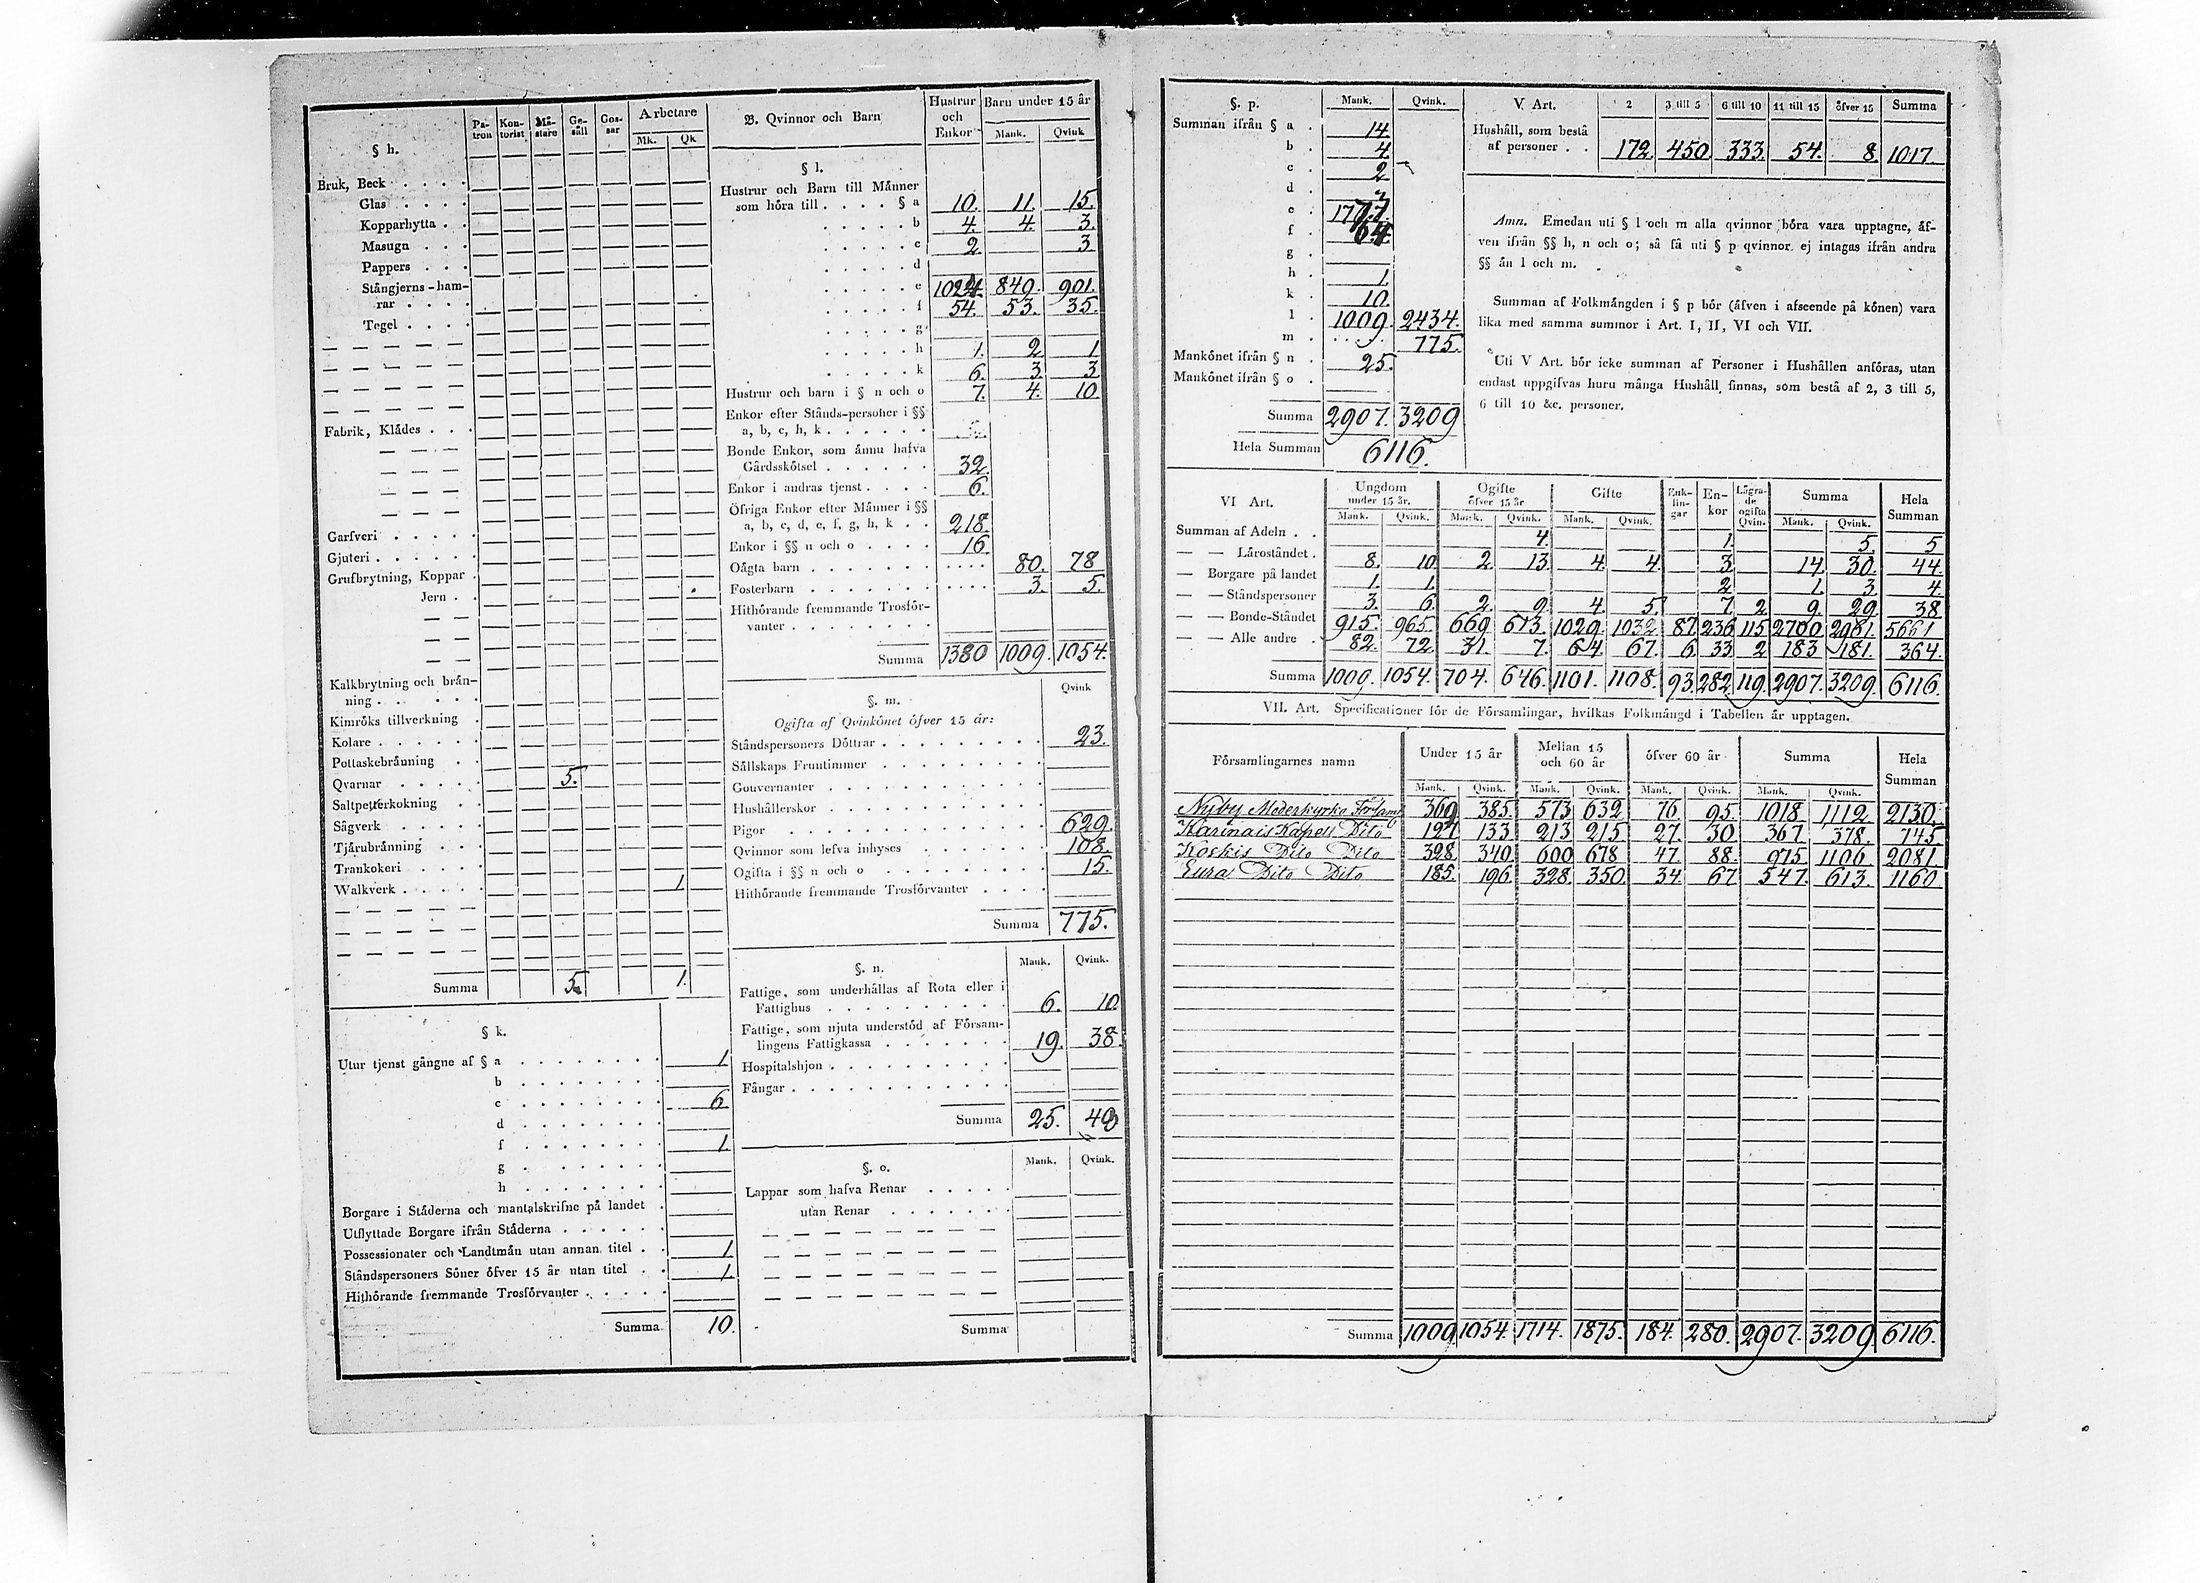 § h.
Pa-tron Kon-torist Mä-stare Ge-säll Gos-sar Arbetare
Mk. Qk
Bruk, Beck . . . .
Glas . . . .
Kopparhytta . .
Masugn . . .
Pappers . . .
Stångjerns-ham-
rar . . . .
Tegel . . . .
Fabrik, Klådes . . .
Garfveri . . . . .
Gjuteri . . . . . .
Grufbrytning, Koppar .
Jern . .
Kalkbrytning och brån-
ning . . . . . .
Kimröks tillverkning .
Kolare . . . . . .
Pottaskebrånning . .
Qvarnar . . . . . 5.
Saltpetterkokning . .
Sågverk . . . . .
Tjårubrånning . . .
Trankokeri . . . .
Walkverk . . . . . 1
Summa 5. 1.
§ k.
Utur tjenst gångne af § a . . . . . . . 1
b . . . . . . .
c . . . . . . . 6
d . . . . . . .
f . . . . . . . 1.
g . . . . . . .
h . . . . . . .
Borgare i Ståderna och mantalskrifne på landet .
Utflyttade Borgare ifrån Ståderna . . . . .
Possessionater och Landtmån utan annan titel . . 1
Ståndspersoners Söner öfver 15 år utan titel . . 1.
Hithörande fremmande Trosförvanter . . . . .
Summa 10.
B. Qvinnor och Barn
Hustrur och Enkor Barn under 15 år
Mank. Qvink
§ l.
Hustrur och Barn till Månner
som höra till . . . . § a 10. 11. 15.
. . . . . b 4. 4. 3.
. . . . . c 2 3
. . . . . d
. . . . . e 1024 849. 901.
. . . . . f 54. 53. 35.
. . . . . g
. . . . . h 1. 2 1
. . . . . k 6. 3. 3
Hustrur och barn i § n och o 7. 4. 10
Enkor efter Stånds-persoher i §§
a, b, c, h, k . . . . . .
Bonde Enkor, som ånnu hafva
Gårdsskötsel . . . . . . 32.
Enkor i andras tjenst . . . . 6.
Öfriga Enkor efter Månner i §§
a, b, c, d, e, f, g, h, k . . 218.
Enkor i §§ n och o . . . . 16
Oågta barn . . . . . . . . . . . 80. 78
Fosterbarn . . . . . . . . . . . 3. 5.
Hithörande fremmande Trosför-
vanter . . . . . . . .
Summa 1380 1009. 1054.
§. m.
Ogifta af Qvinkönet öfver 15 år:
Qvink
Ståndspersoners Döttrar . . . . . . . . . 23.
Sållskaps Fruntimmer . . . . . . . . .
Gouvernanter . . . . . . . . . . . .
Hushållerskor . . . . . . . . . . . .
Pigor . . . . . . . . . . . . . 629.
Qvinnor som lefva inhyses . . . . . . . 108.
Ogifta i §§ n och o . . . . . . . . . 15.
Hithörande fremmande Trosförvanter . . . .
Summa 775.
§. n.
Mank. Qvink.
Fattige, som underhållas af Rota eller i
Fattighus . . . . . . . . . 6. 10.
Fattige, som njuta understöd af Försam-
lingens Fattigkassa . . . . . . . 19. 38.
Hospitalshjon . . . . . . . . . .
Fångar . . . . . . . . . . . .
Summa 25. 48
§. o.
Mank. Qvink.
Lappar som hafva Renar . . . . .
utan Renar . . . . . . .
Summa
§. p. Mank. Qvink.
Summan ifrån § a . 14
b . 4
c . 2
d .
e . 1777.
f . 64
g .
h . 1.
k . 10.
l . 1009. 2434.
m . . . . 775.
Mankönet ifrån § n . 25.
Mankönet ifrån § o .
Summa 2907. 3209
Hela Summan 6116.
V. Art. 2 3 till 5 6 till 10 11 till 15 öfver 15 Summa
Hushåll, som bestå
af personer . . 172. 450. 333. 54. 8. 1017.
Anm. Emedan uti § l och m alla qvinnor böra vara upptagne, åf-
ven ifrån §§ h, n och o; så få uti § p qvinnor ej intagas ifrån andra
§§ ån l och m.
Summan af Folkmångden i § p bör (åfven i afseende på könen) vara
lika med samma summor i Art. I, II, VI och VII.
Uti V Art. bör icke summan af Personer i Hushållen anföras, utan
endast uppgifvas huru många Hushåll finnas, som bestå af 2, 3 till 5,
6 till 10 &c. personer.
VI Art. Ungdom under 15 år. Ogifte öfver 15 år Gifte Enk-lin-gar En-kor Lågra-de ogifta Qvin. Summa Hela Summan
Mank. Qvink. Mank. Qvink. Mank. Qvink. Mank. Qvink.
Summan af Adeln . . 4. 1. 5. 5
— — Låroståndet . 8. 10 2 13. 4. 4 3 14 30. 44.
— Borgare på landet 1. 1. 2 1. 3. 4.
— — Ståndspersoner 3. 6. 2. 9. 4. 5. 7. 2 9. 29. 38.
— — Bonde-Ståndet 915. 965. 669 613. 1029. 1032 87. 236 115 2700 2961. 5661
— — Alle andre . 82. 72 31. 7. 64. 67. 6 33 2 183 181. 364.
Summa 1009. 1054. 704. 646. 1101. 1108. 93. 282 119. 2907. 3209. 6116.
VII. Art. Specificationer för de Församlingar, hvilkas Folkmångd i Tabellen år upptagen.
Församlingarnes namn Under 15 år Mellan 15 och 60 år öfver 60 år Summa Hela Summan
Mank. Qvink. Mank. Qvink. Mank. Qvink. Mank. Qvink.
Nyby Moderkyrko Församl 369 385. 573 632 76 95. 1018 1112 2130.
Karinais Kapell Dito 127 133. 213 215 27. 30 367 378. 745.
Koskis Dito Dito 328 340. 600 678 47. 88. 975 1106 2081.
Eura Dito Dito 185. 196 328. 350. 34. 67. 547. 613. 1160
Summa 1009 1054. 1714. 1875. 184. 280. 2907. 3209. 6116.